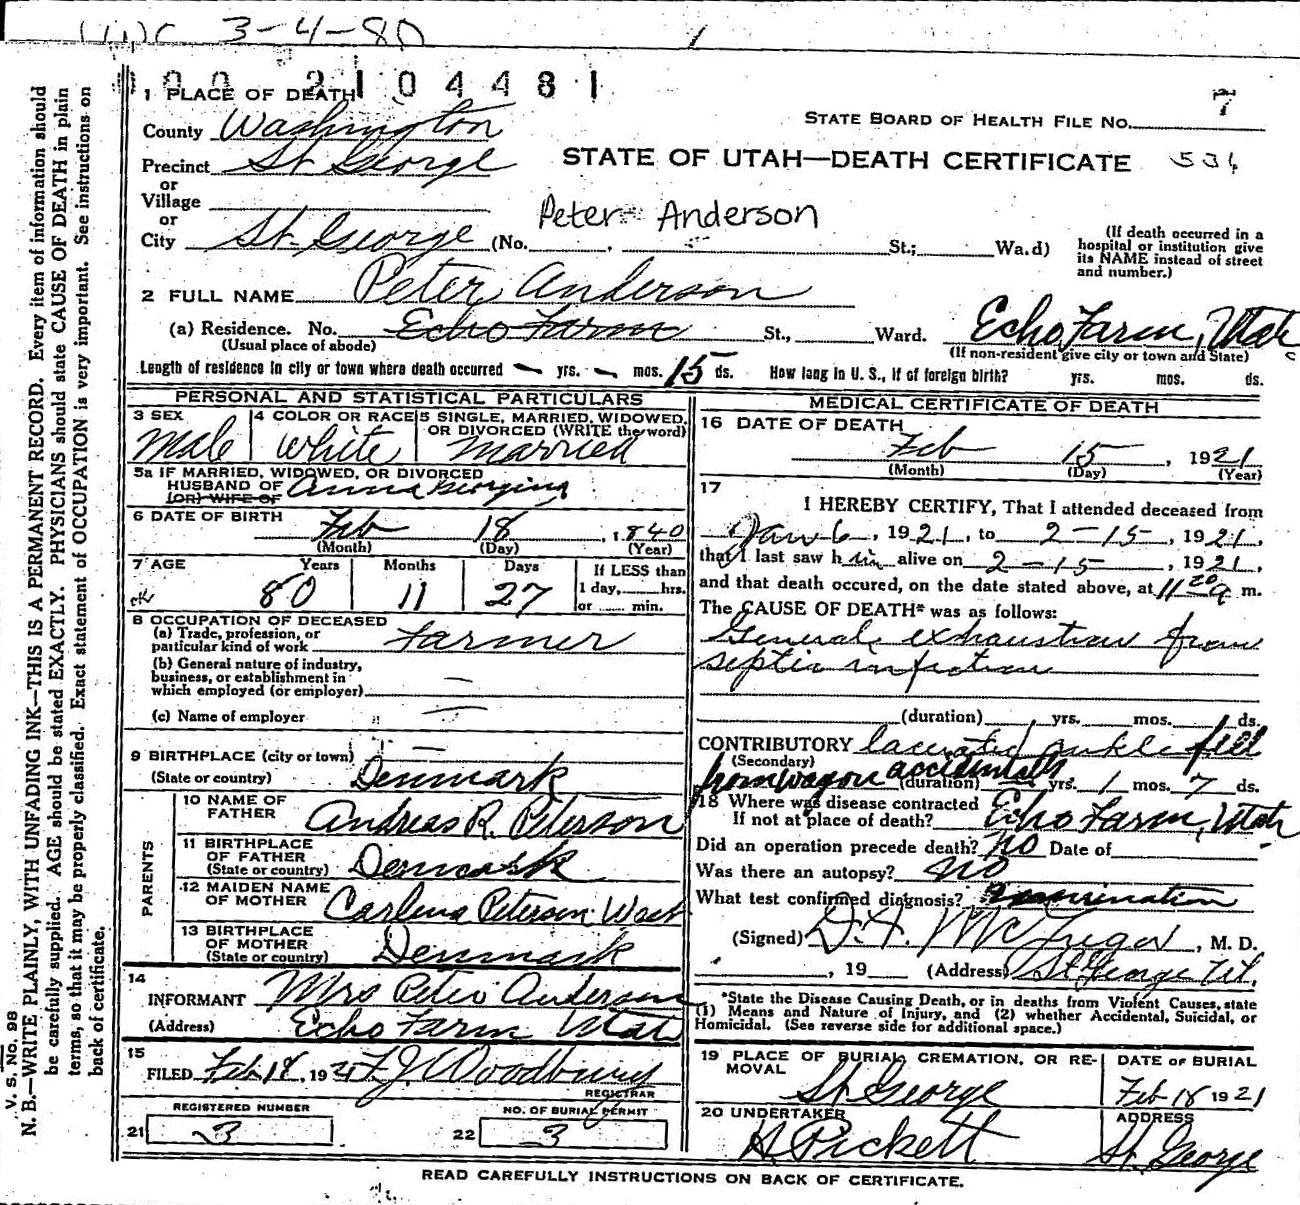 3-4-80
000 2104481
1 PLACE OF DEATH
County Washington
STATE BOARD OF HEALTH FILE No. 7
Precinct St George
STATE OF UTAH—DEATH CERTIFICATE 534
or
Village
or
Peter Anderson
City St. George (No. , St.; Wa.d)
(If death occurred in a
hospital or institution give
its NAME instead of street
and number.)
2 FULL NAME Peter Anderson
(a) Residence. No. Echo Farm St., Ward. Echo Farm, Utah
(Usual place of abode)
(If non-resident give city or town and State)
Length of residence in city or town where death occurred — yrs. — mos. 15 ds. How long in U. S., if of foreign birth? yrs. mos. ds.
PERSONAL AND STATISTICAL PARTICULARS
3 SEX
Male
4 COLOR OR RACE
White
5 SINGLE, MARRIED, WIDOWED,
OR DIVORCED (WRITE the word)
Married
5a IF MARRIED, WIDOWED, OR DIVORCED
HUSBAND OF Anna Georgina
(OR) WIFE OF
6 DATE OF BIRTH Feb 18, 1840
(Month) (Day) (Year)
7 AGE Years Months Days If LESS than
1 day, hrs.
80 11 27
or min.
8 OCCUPATION OF DECEASED
(a) Trade, profession, or
particular kind of work Farmer
(b) General nature of industry,
business, or establishment in
which employed (or employer) —
(c) Name of employer "
9 BIRTHPLACE (city or town) —
(State or country) Denmark
PARENTS
10 NAME OF
FATHER Andreas R. Peterson
11 BIRTHPLACE
OF FATHER
(State or country) Denmark
12 MAIDEN NAME
OF MOTHER Carlena Petersen West
13 BIRTHPLACE
OF MOTHER
(State or country) Denmark
14
INFORMANT Mrs Peter Anderson
(Address) Echo Farm Utah
15
FILED Feb 18, 1921 F. J. Woodbury
REGISTRAR
REGISTERED NUMBER
21 3
NO. OF BURIAL PERMIT
22 3
MEDICAL CERTIFICATE OF DEATH
16 DATE OF DEATH
Feb 15, 1921
(Month) (Day) (Year)
17
I HEREBY CERTIFY, That I attended deceased from
Jan 6, 1921, to 2-15, 1921,
that I last saw him alive on 2-15, 1921,
and that death occured, on the date stated above, at 11 20 a m.
The CAUSE OF DEATH* was as follows:
General exhaustion from
septic infection
(duration) yrs. mos. 1 ds.
CONTRIBUTORY lacerated ankle fell
(Secondary)
from wagon accidentally
(duration) yrs. 1 mos. 7 ds.
18 Where was disease contracted
If not at place of death? Echo Farm, Utah
Did an operation precede death? No Date of
Was there an autopsy? No
What test confirmed diagnosis? Examination
(Signed) D. A. McGregor, M. D.
, 19 (Address) St George Ut.
*State the Disease Causing Death, or in deaths from Violent Causes, state
(1) Means and Nature of Injury, and (2) whether Accidental, Suicidal, or
Homicidal. (See reverse side for additional space.)
19 PLACE OF BURIAL, CREMATION, OR RE-
MOVAL
St George
DATE OF BURIAL
Feb 18 1921
20 UNDERTAKER
A Pickett
ADDRESS
St. George
READ CAREFULLY INSTRUCTIONS ON BACK OF CERTIFICATE.
V. S. No. 98
N. B.—WRITE PLAINLY, WITH UNFADING INK—THIS IS A PERMANENT RECORD. Every item of information should
be carefully supplied. AGE should be stated EXACTLY. PHYSICIANS should state CAUSE OF DEATH in plain
terms, so that it may be properly classified. Exact statement of OCCUPATION is very important. See instructions on
back of certificate.